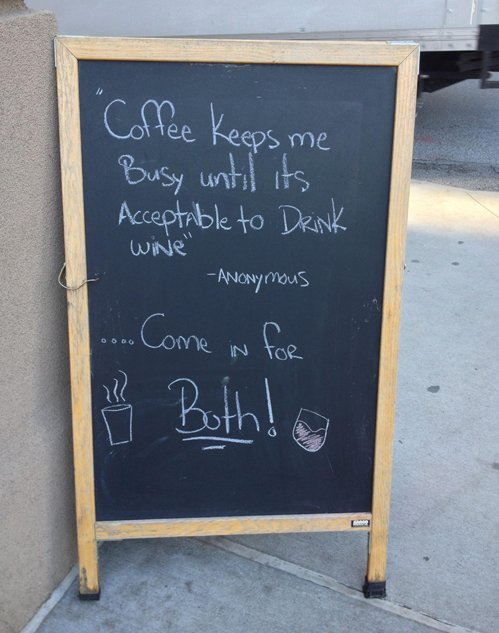 "Coffee Keeps me
Busy until its
Acceptable to Drink
wine"
-Anonymous
....Come in for
Both!